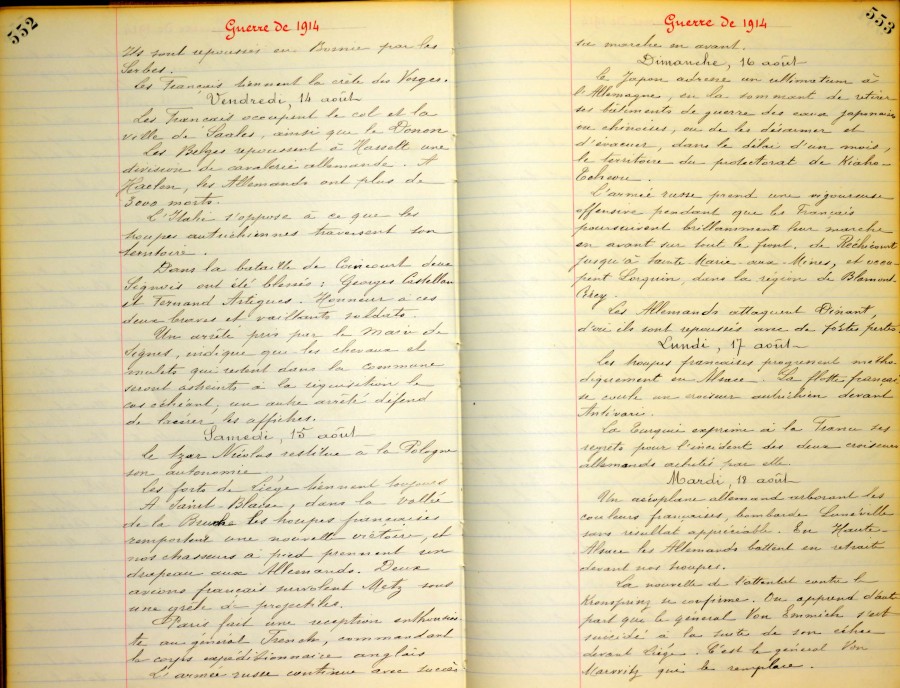 552
Guerre de 1914
Ils sont repoussés en Bosnie par les
Serbes.
Les Français tiennent la crête des Vosges.
Vendredi, 14 août
Les Français occupent le col et la
ville de Saales, ainsi que le Donon
Les Belges repoussent à Hasselt une
division de cavalerie allemande. A
Haelen, les Allemands ont plus de
3000 morts.
L'Italie s'oppose à ce que les
troupes autrichiennes traversent son
territoire.
Dans la bataille de Coincourt deux
Segnois ont été blessés : Georges Castellan
et Fernand Artigues. Honneur à ces
deux braves et vaillants soldats.
Un arrêté pris par le Maire de
Signes, indique que les chevaux et
mulets qui restent dans la commune
seront astreints à la réquisition le
cas échéant; un autre arrêté défend
de lacérer les affiches.
Samedi, 15 août
Le tzar Nicolas restitue à la Pologne
son autonomie.
Les forts de Liége tiennent toujours
A Saint-Blaise, dans la vallée
de la Bruche les troupes françaises
remportent une nouvelle victoire, et
nos chasseurs à pied prennent un
drapeau aux Allemands. Deux
avions français survolent Metz sous
une grêle de projectiles.
Paris fait une réception enthousias-
te au général French, commandant
le corps expéditionnaire anglais
L'armée russe continue avec succès
553
Guerre de 1914
sa marche en avant.
Dimanche, 16 août
Le Japon adresse un ultimatum à
l'Allemagne, en la sommant de retirer
ses bâtiments de guerre des eaux japonaises
ou chinoises, ou de les désarmer et
d'évacuer, dans le délai d'un mois,
le territoire du protectorat de Kiaho-
Tcheou.
L'armée russe prend une vigoureuse
offensive pendant que les Français
poursuivent brillamment leur marche
en avant sur tout le front, de Réchicourt
jusqu'à Sainte Marie-aux-Mines, et occu-
pent Lorquin, dans la région de Blamont
Cirey.
Les Allemands attaquent Dinant,
d'où ils sont repoussés avec de fortes pertes.
Lundi, 17 août
Les troupes françaises progressent métho-
diquement en Alsace. La flotte française
coule un croiseur autrichien devant
Antivari.
La Turquie exprime à la France ses
regrets pour l'incident des deux croiseurs
allemands achetés par elle.
Mardi, 18 août
Un aéroplane allemand arborant les
couleurs françaises, bombarde Lunéville
sans résultat appréciable. En Haute-
Alsace les Allemands battent en retraite
devant nos troupes.
La nouvelle de l'attentat contre le
Kronsprinz se confirme. On apprend d'autre
part que le général Von Emmich s'est
suicidé à la suite de son échec
devant Liége. C'est le général Von
Marwitz qui le remplace.